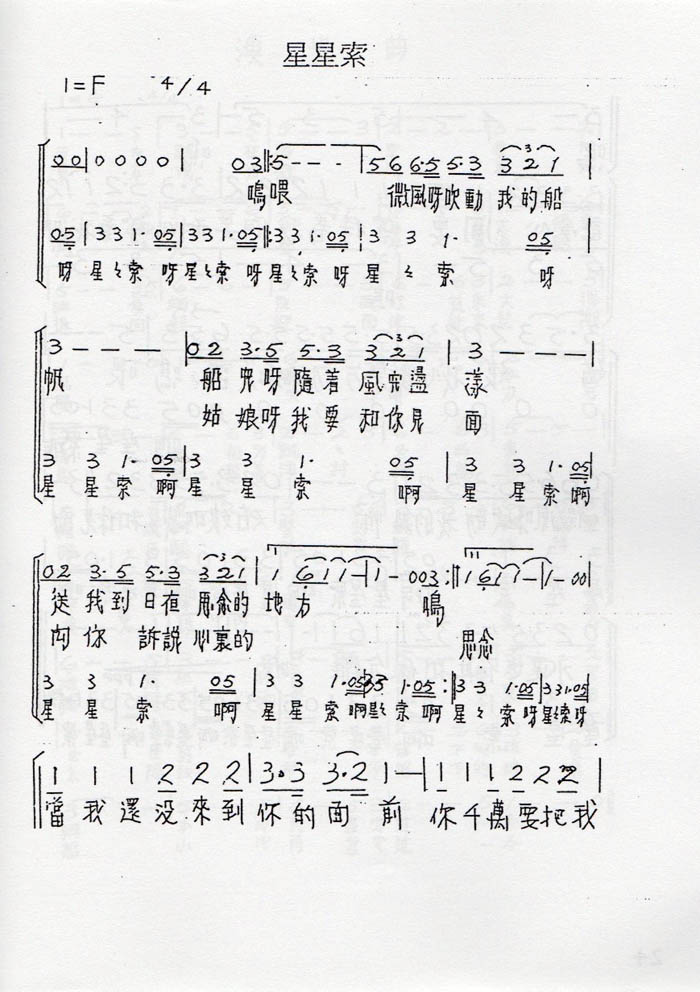 星星索
1=F 4/4
0 0 | 0 0 0 0 | 0 3 ‖: 5 - - - | 5 6 6·5 5·3 3 2 1 |
嗚喂 微風呀吹動 我的船
05 | 3 3 1· 05 | 3 3 1· 05 ‖: 3 3 1· 05 | 3 3 1· 05 |
呀 星々索 呀 星々索 呀 星々索 呀 星々索 呀
3 - - - | 0 2 3·5 5·3 3 2 1 | 3 - - - |
帆 船兒呀隨着 風兒盪 漾
姑娘呀我要 和你見 面
3 3 1· 05 | 3 3 1· 05 | 3 3 1· 05 |
星 星 索 啊 星 星 索 啊 星 星 索 啊
0 2 3·5 5·3 3 2 1 | 1 6 1 1 - | 1 - 0 03 :‖ 1 6 1 1 - | 1 - 0 0
從 我到日夜 思念的 地方 嗚
向 你 訴説 心裏的 思念
3 3 1· 05 | 3 3 1· 05 | 3 3 1· 05 :‖ 3 3 1· 05 | 3 3 1· 05
星 星 索 啊 星 星 索 啊 星々 索 啊 星々 索 呀 星々索 呀
1 1 1 2 2 2 2 | 3·3 3·2 1 — | 1 1 1 2 2 2 2 |
當我還没來到你的面 前 你千萬要把我